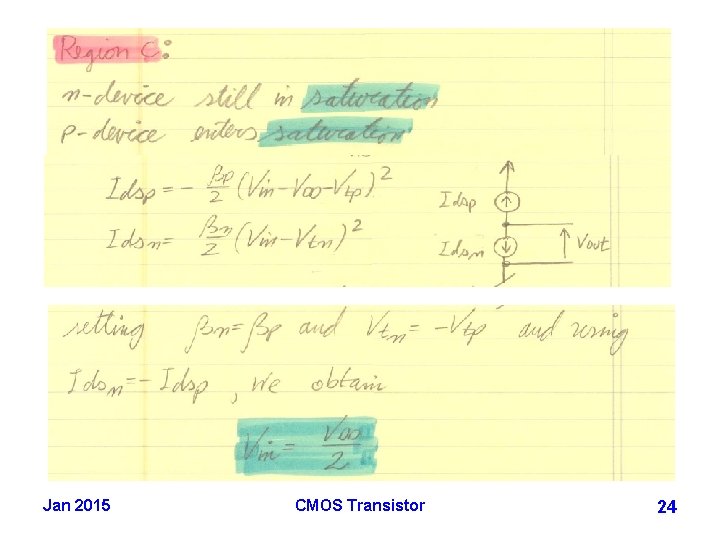 Region C:
n-device still in saturation
p-device enters saturation
Idsp = - βp/2 (Vin-VDD-Vtp)²
Idsn = βn/2 (Vin-Vtn)²
Idsp
Idsn
Vout
setting βn=βp and Vtn = -Vtp and using
Idsn = - Idsp, we obtain
Vin = VDD/2
Jan 2015 CMOS Transistor 24